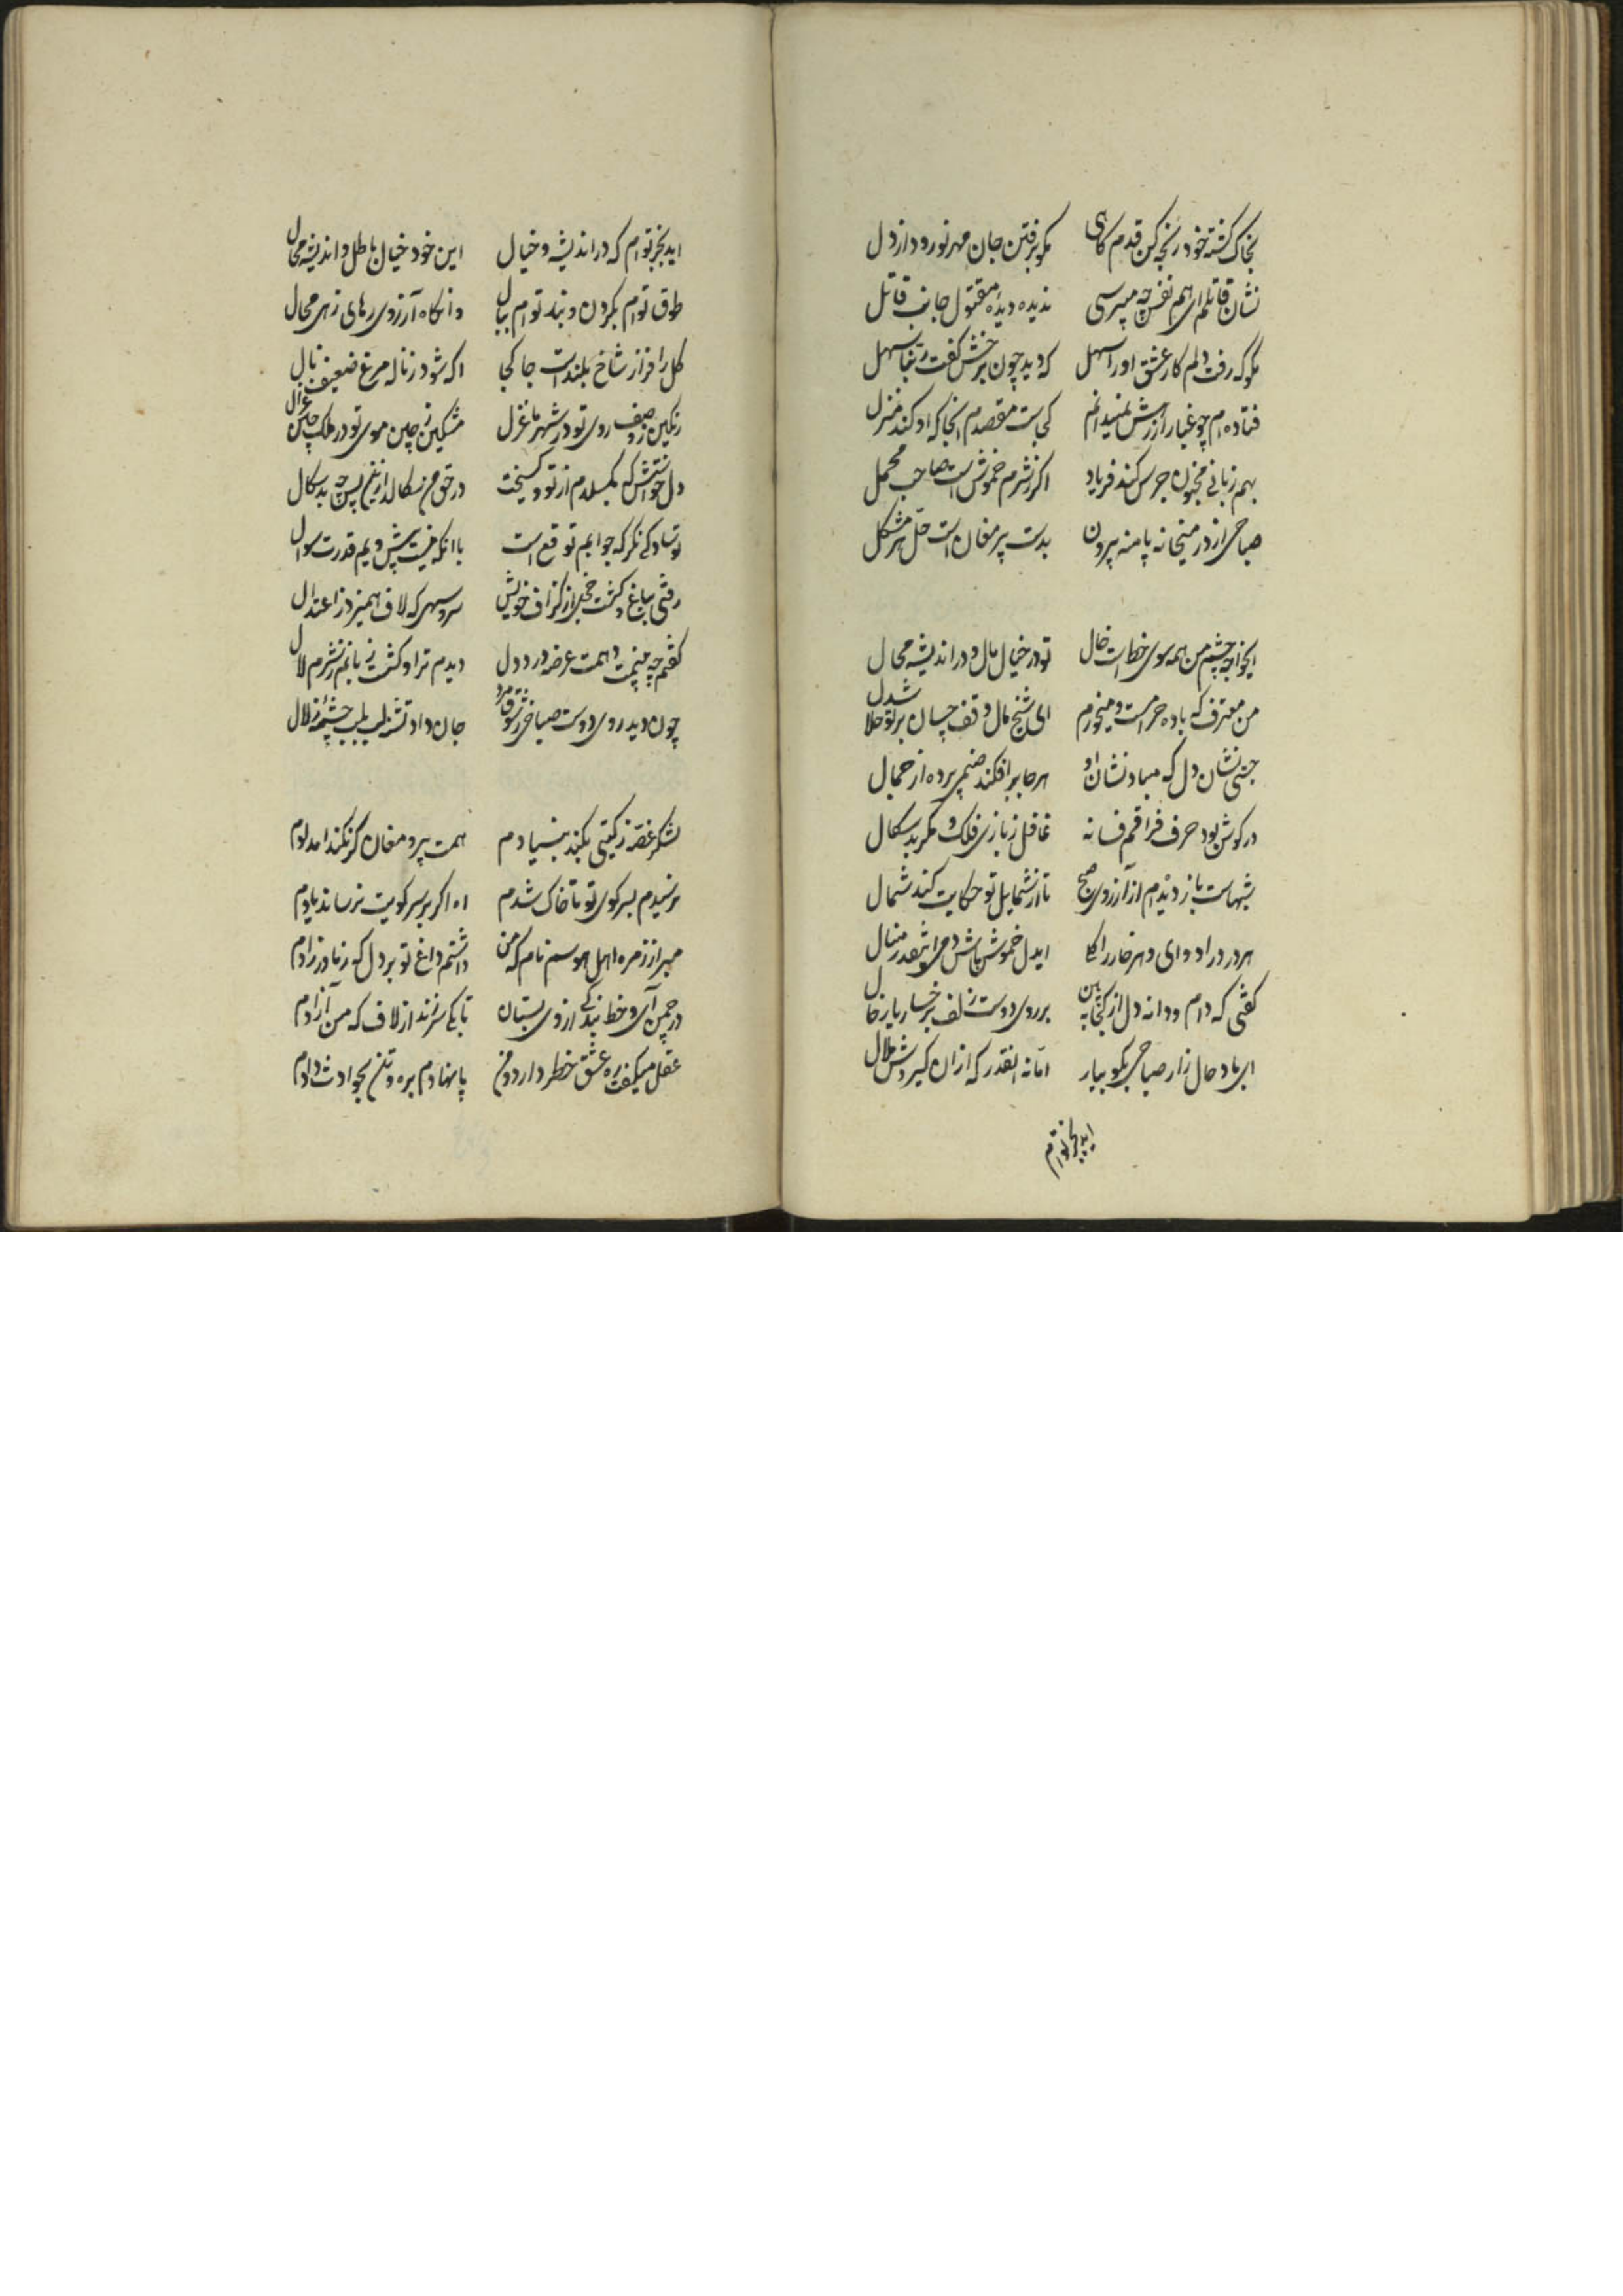 بخاک کشته خود رنجه کن قدم کاهی مکو برفتن جان مهر تو رود از دل
نشان قاتلم ای هم نفس چه میپرسی ندیده دیدهٔ مقتول جانب قاتل
مکو که رفت دلم کار عشق او را سهل که دید چون برخش کفت
فتاده ام چو غبار از رهش نمیدانم کجاست مقصدم انجا که او کند منزل
بهم زبانی مجنون جرس کند فریاد اکر ز شرم خموش است صاحب محمل
صباحی از در میخانه پا منه بیرون بدست پیر مغان است حل هر مشکل
ایخواجه چشم من همه سوی خط است و خال تو در خیال مال و در اندیشه محال
من معترف که باده حرامست و میخورم ای شیخ مال وقف چسان بر تو شد حلال
جستی نشان دل که مباد نشان او هر جا برافکند صنمی پرده از جمال
در کوش بود حرف فراقم فسانه غافل ز بازی فلک و مکر بد سکال
شبهاست باز دیده ام از آرزوی صبح تا از شمایل تو حکایت کند شمال
هر درد را دوای و هر خار را کلی ایدل خموش باش دمی اینقدر منال
کفتی که دام و دانه دل از کجا ببین بر روی دوست زلف برخسار یار خال
ای باد حال زار صباحی بکو بیار اما نه انقدر که از آن کیردش ملال
ایدیخبر توام
ایدیخبر توام که در اندیشه و خیال این خود خیال باطل و اندیشه محال
طوق توام بکردن و بند توام ببال وانکاه آرزوی رهای زهی محال
کل را فراز شاخ بلند است جا کجا اکه شود ز ناله مرغ ضعیف نال
رنکین ز وصف روی تو در شهر ما غزل مشکین ز چین موی تو در ملک چین غزال
دل خواستش که بکسلدم از تو و کسیخت در حق من سکالد ازین پس چه بد سکال
تو ساده کی نکر که جوابم توقع است با انکه نیست پیش ویم قدرت سوال
رفتی بباغ و کشت خجل از کزاف خویش سرو سهی که لاف همیزد ز اعتدال
کفتم چه بینمت دهمت عرضه درد دل دیدم ترا و کشت زبانم ز شرم لال
چون دید روی دوست صباحی ز شوق مرد جان داد تشنه لب بلب چشمهٔ زلال
لشکر غصه ز کیتی بکند بنیادم همت پیر مغان کر نکند امدادم
نرسیدم بسر کوی تو تا خاک شدم اه اکر بر سر کویت نرساند بادم
مبر از زمره اهل هوسم نام که من داشتم داغ تو بر دل که ز مادر زادم
در چمن آی و خط بندکی از وی بستان تا بکی سرو زند از لاف که من آزادم
عقل میکفت ره عشق خطر دارد و من پا نهادم بره و تن بحوادث دادم